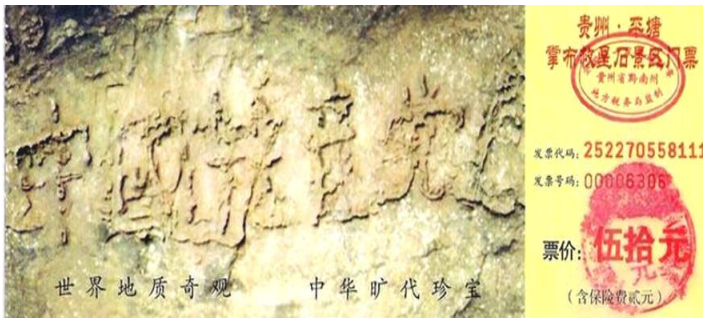 中國共产党亡
世界地质奇观 中华旷代珍宝
贵州·平塘
掌布救星石景区门票
贵州省黔南州
地方税务局监制
发票代码：252270558111
发票号码：00006306
票价：伍拾元
（含保险费贰元）